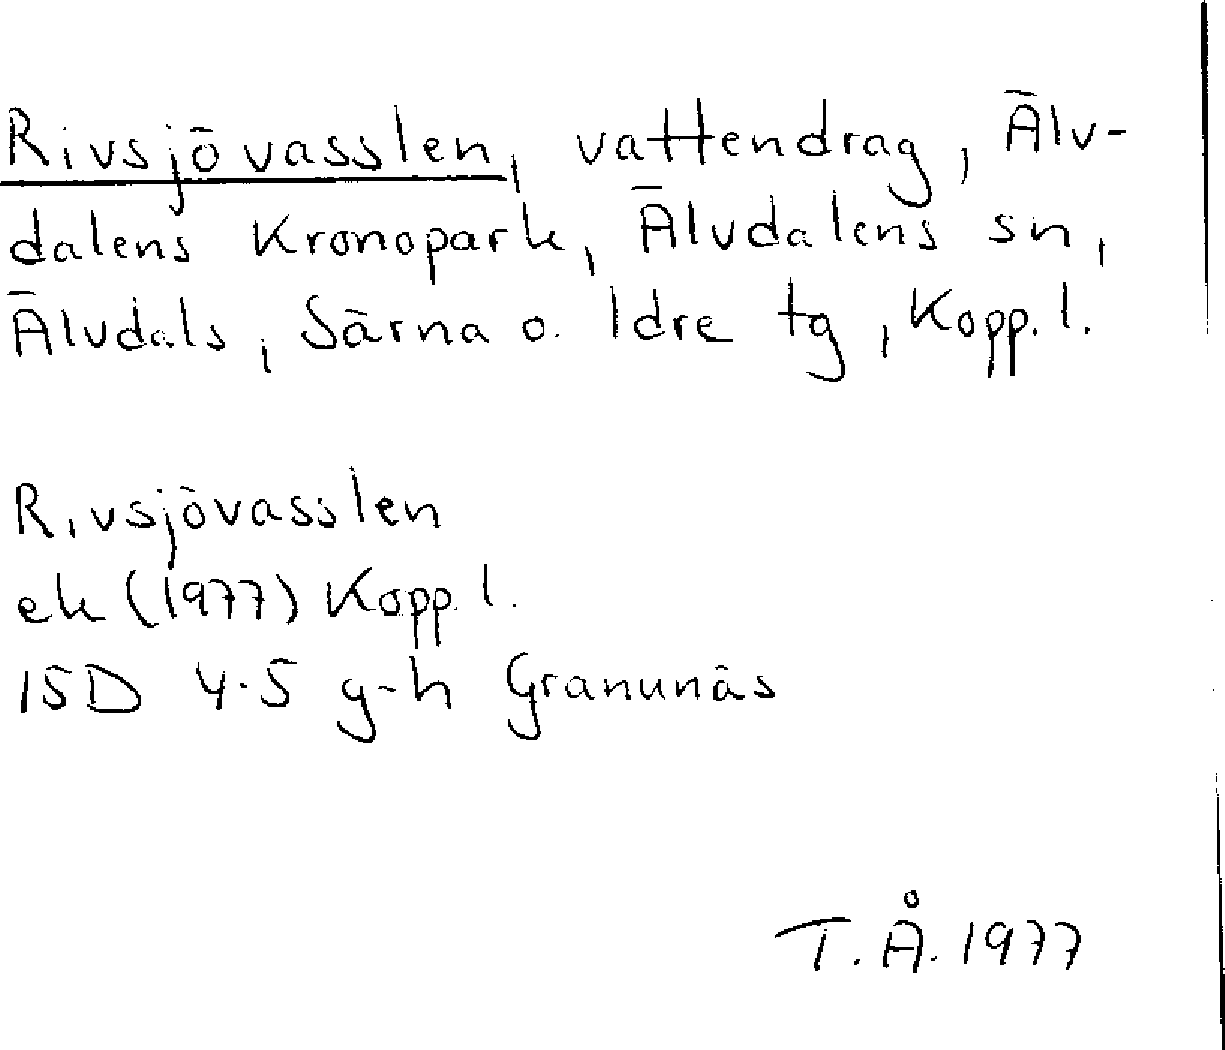 Rivsjövasslen, vattendrag, Älv-
dalens Kronopark, Älvdalens sn,
Älvdals, Särna o. Idre tg, Kopp. l.
Rivsjövasslen
ek (1977) Kopp. l.
15D 4-5 g-h Granunäs
T.Å. 1977